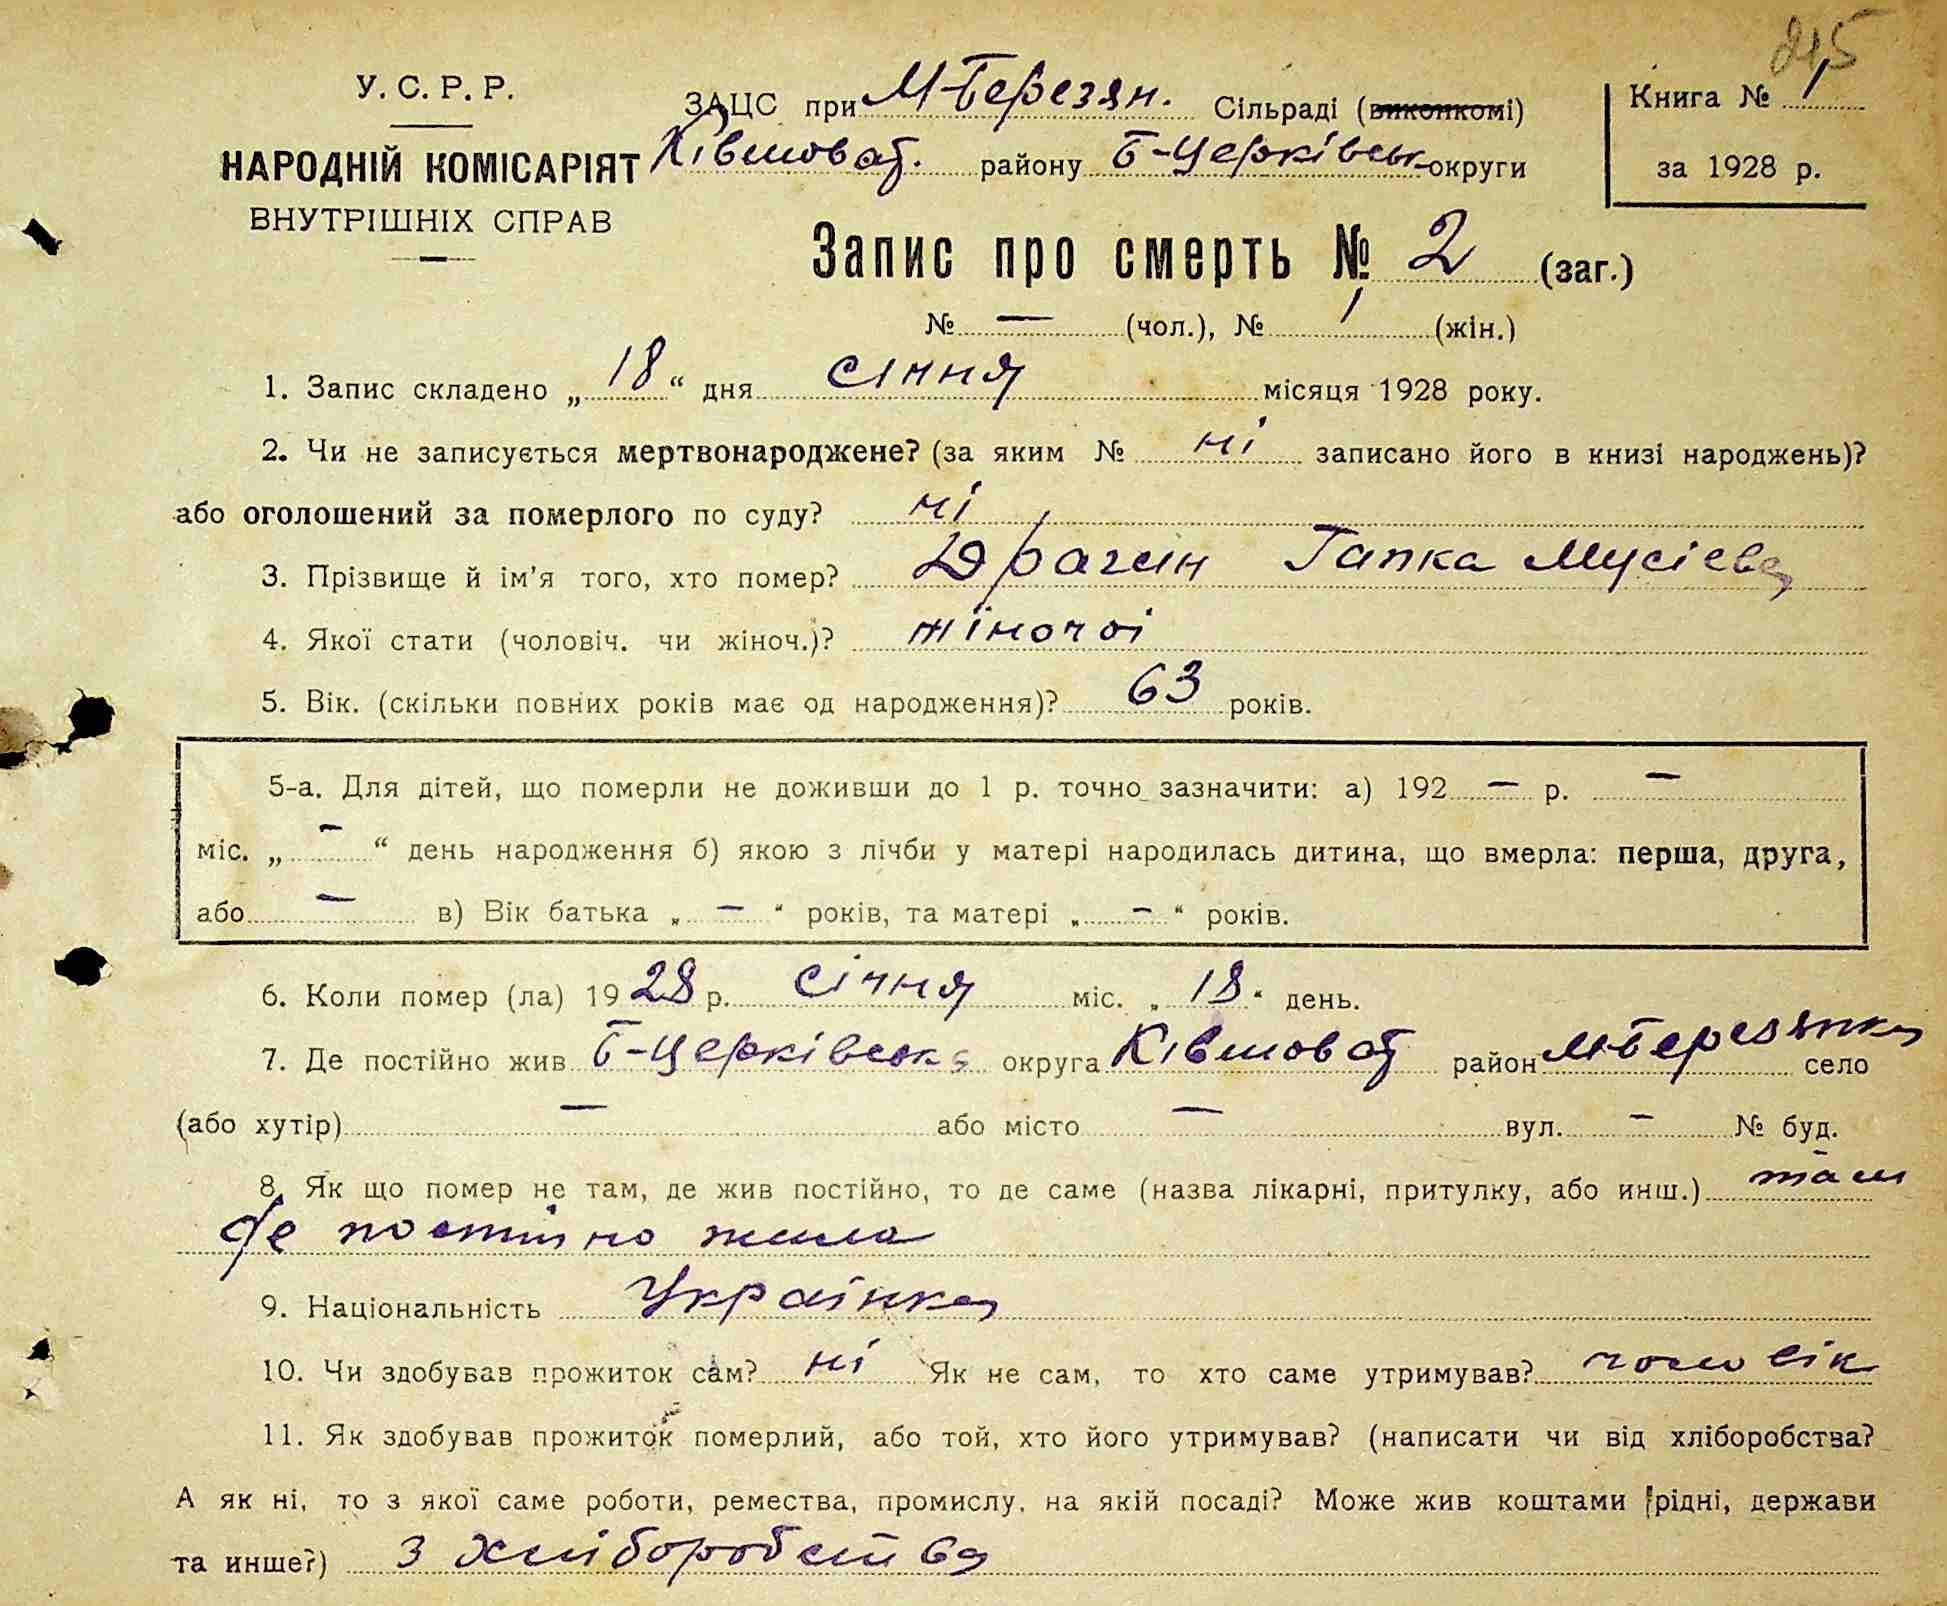 215
У. С. Р. Р.
НАРОДНІЙ КОМІСАРІЯТ
ВНУТРІШНІХ СПРАВ
ЗАЦС при М-Березян. Сільраді (виконкомі)
Ківшоват. району Б-Церківськ округи
Книга № 1
за 1928 р.
Запис про смерть № 2 (заг.)
№ — (чол.), № 1 (жін.)
1. Запис складено „ 18 “ дня січня місяця 1928 року.
2. Чи не записується мертвонароджене? (за яким № ні записано його в книзі народжень)?
або оголошений за померлого по суду? ні
3. Прізвище й ім'я того, хто помер? Драган Гапка Мусієва
4. Якої стати (чоловіч. чи жіноч.)? жіночої
5. Вік. (скільки повних років має од народження)? 63 років.
5-а. Для дітей, що померли не доживши до 1 р. точно зазначити: а) 192 — р. —
міс. „ — “ день народження б) якою з лічби у матері народилась дитина, що вмерла: перша, друга,
або — в) Вік батька „ — “ років, та матері „ — “ років.
6. Коли помер (ла) 1928 р. січня міс. „ 18 “ день.
7. Де постійно жив Б-Церківська округа Ківшоват район М-Березянка село
(або хутір) — або місто — вул. — № буд.
8. Як що помер не там, де жив постійно, то де саме (назва лікарні, притулку, або инш.) там
де постійно жила
9. Національність Українка
10. Чи здобував прожиток сам? ні Як не сам, то хто саме утримував? чоловік
11. Як здобував прожиток померлий, або той, хто його утримував? (написати чи від хліборобства?
А як ні, то з якої саме роботи, ремества, промислу, на якій посаді? Може жив коштами рідні, держави
та инше?) З хліборобства